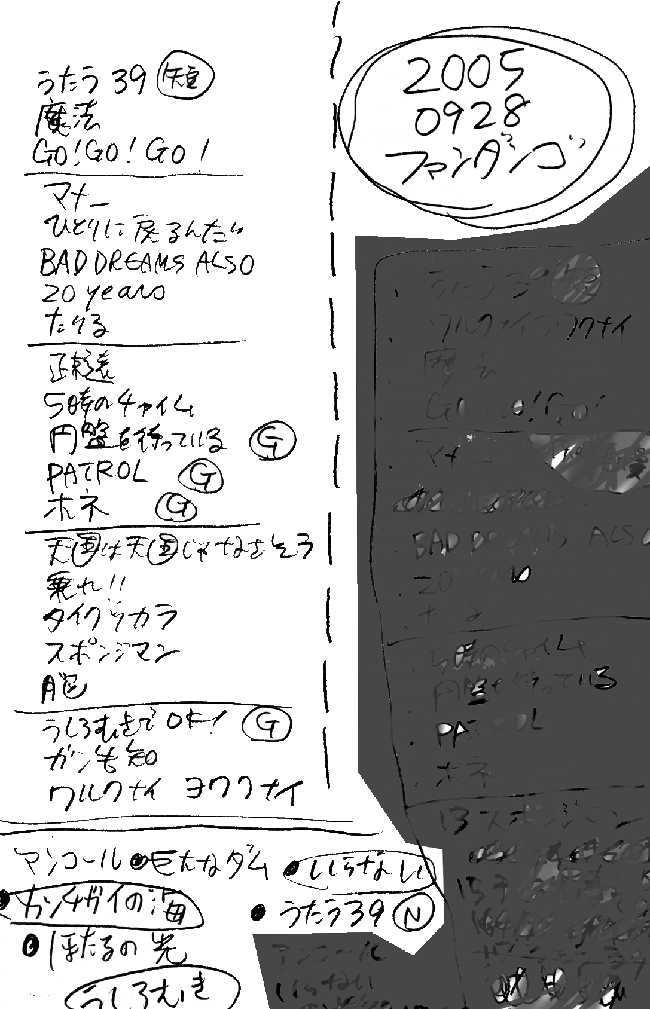 うたう39 短
魔法
GO!GO!GO!
マナー
ひとりに戻るんだい
BAD DREAMS ALSO
20 years
たりる
正報
5時のチャイム
円盤を待っている G
PATROL G
ホネ G
天国は天国じゃなさそう
乗れ!!
タイクツカラ
スポンジマン
脳
うしろむきでOK! G
ガン告知
ワルクナイ ヨワクナイ
アンコール ●巨大なダム ●いらない
●カンチガイの海 ●うたう39 N
●ほたるの光
うしろむき
2005
0928
ファンダンゴ
うたう39 短
ワルクナイヨワクナイ
魔法
GO!GO!GO!
マナー
BAD DREAMS ALSO
20
5時のチャイム
円盤を待っている
PATROL
ホネ
13 スポンジマン
15
アンコール
いらない